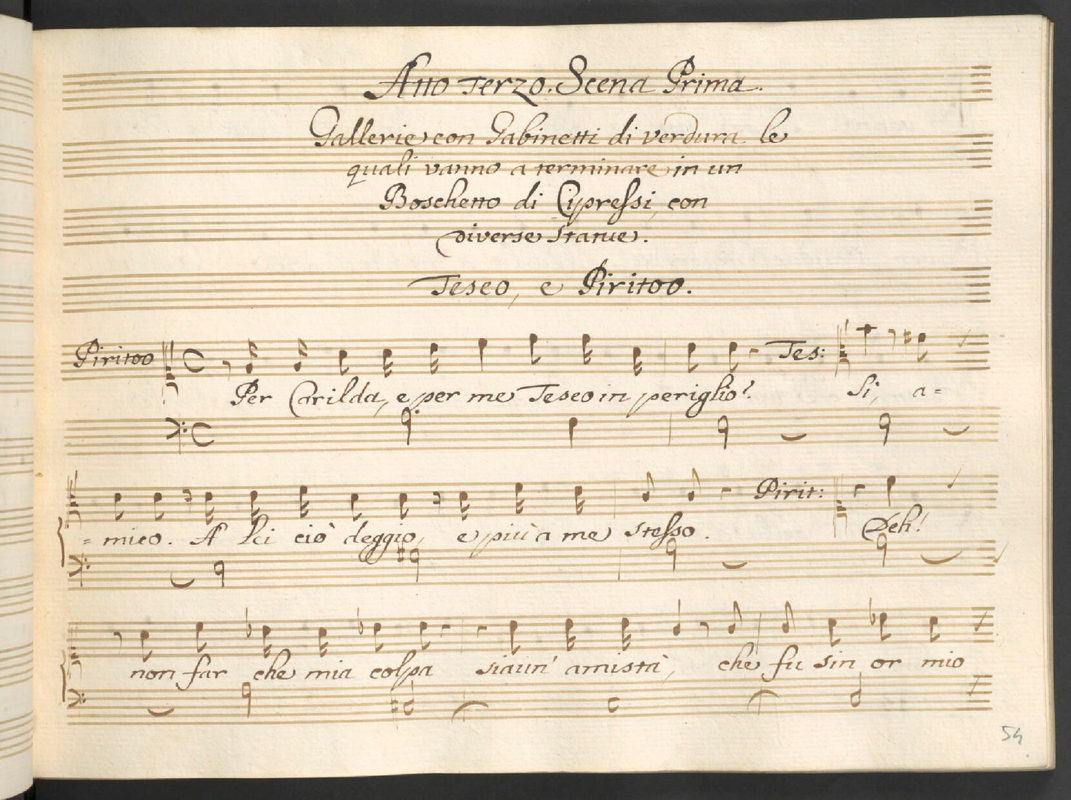 Atto Terzo. Scena Prima.
Gallerie con Gabinetti di verdura le
quali vanno a terminare in un
Boschetto di Cipressi, con
diverse Statue.
Teseo, e Piritoo.
Piritoo Tes:
Per Carilda, e per me Teseo in periglio? Si, a=
Pirit:
=mico. A lei ciò deggio, e più a me stesso. Deh!
non far che mia colpa sia un' amistà, che fu sin or mio
54